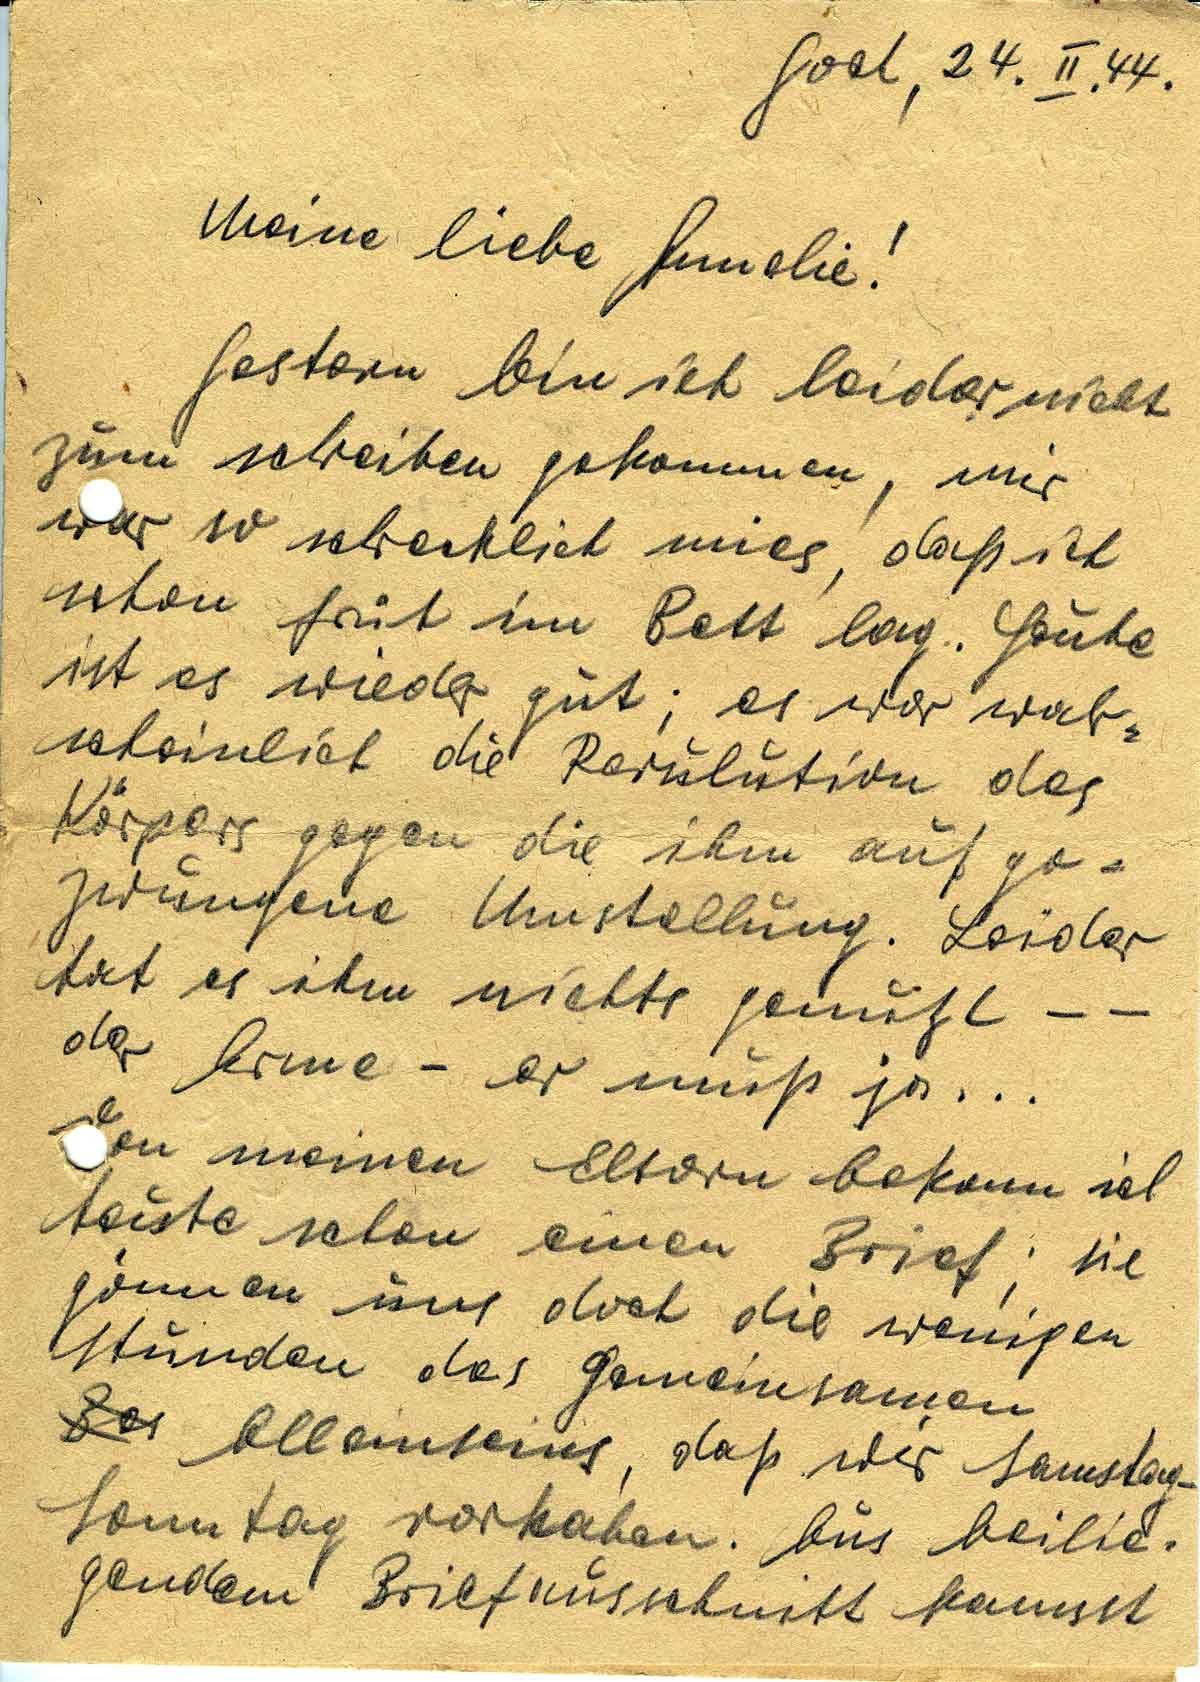 Goch, 24. II. 44.
Meine liebe Annelie!
Gestern bin ich leider nicht
zum schreiben gekommen, mir
war so schrecklich mies, daß ich
schon früh im Bett lag. Heute
ist es wieder gut; es war wahr-
scheinlich die Revulution des
Körpers gegen die ihm aufge-
zwungene Umstellung. Leider
hat es ihm nichts genützt - -
der Arme - er muß ja...
Von meinen Eltern bekam ich
heute schon einen Brief; sie
gönnen uns doch die wenigen
Stunden des gemeinsamen
Alleinseins, daß wir Samstag-
Sonntag vorhaben. Aus beilie-
gendem Briefausschnitt kannst